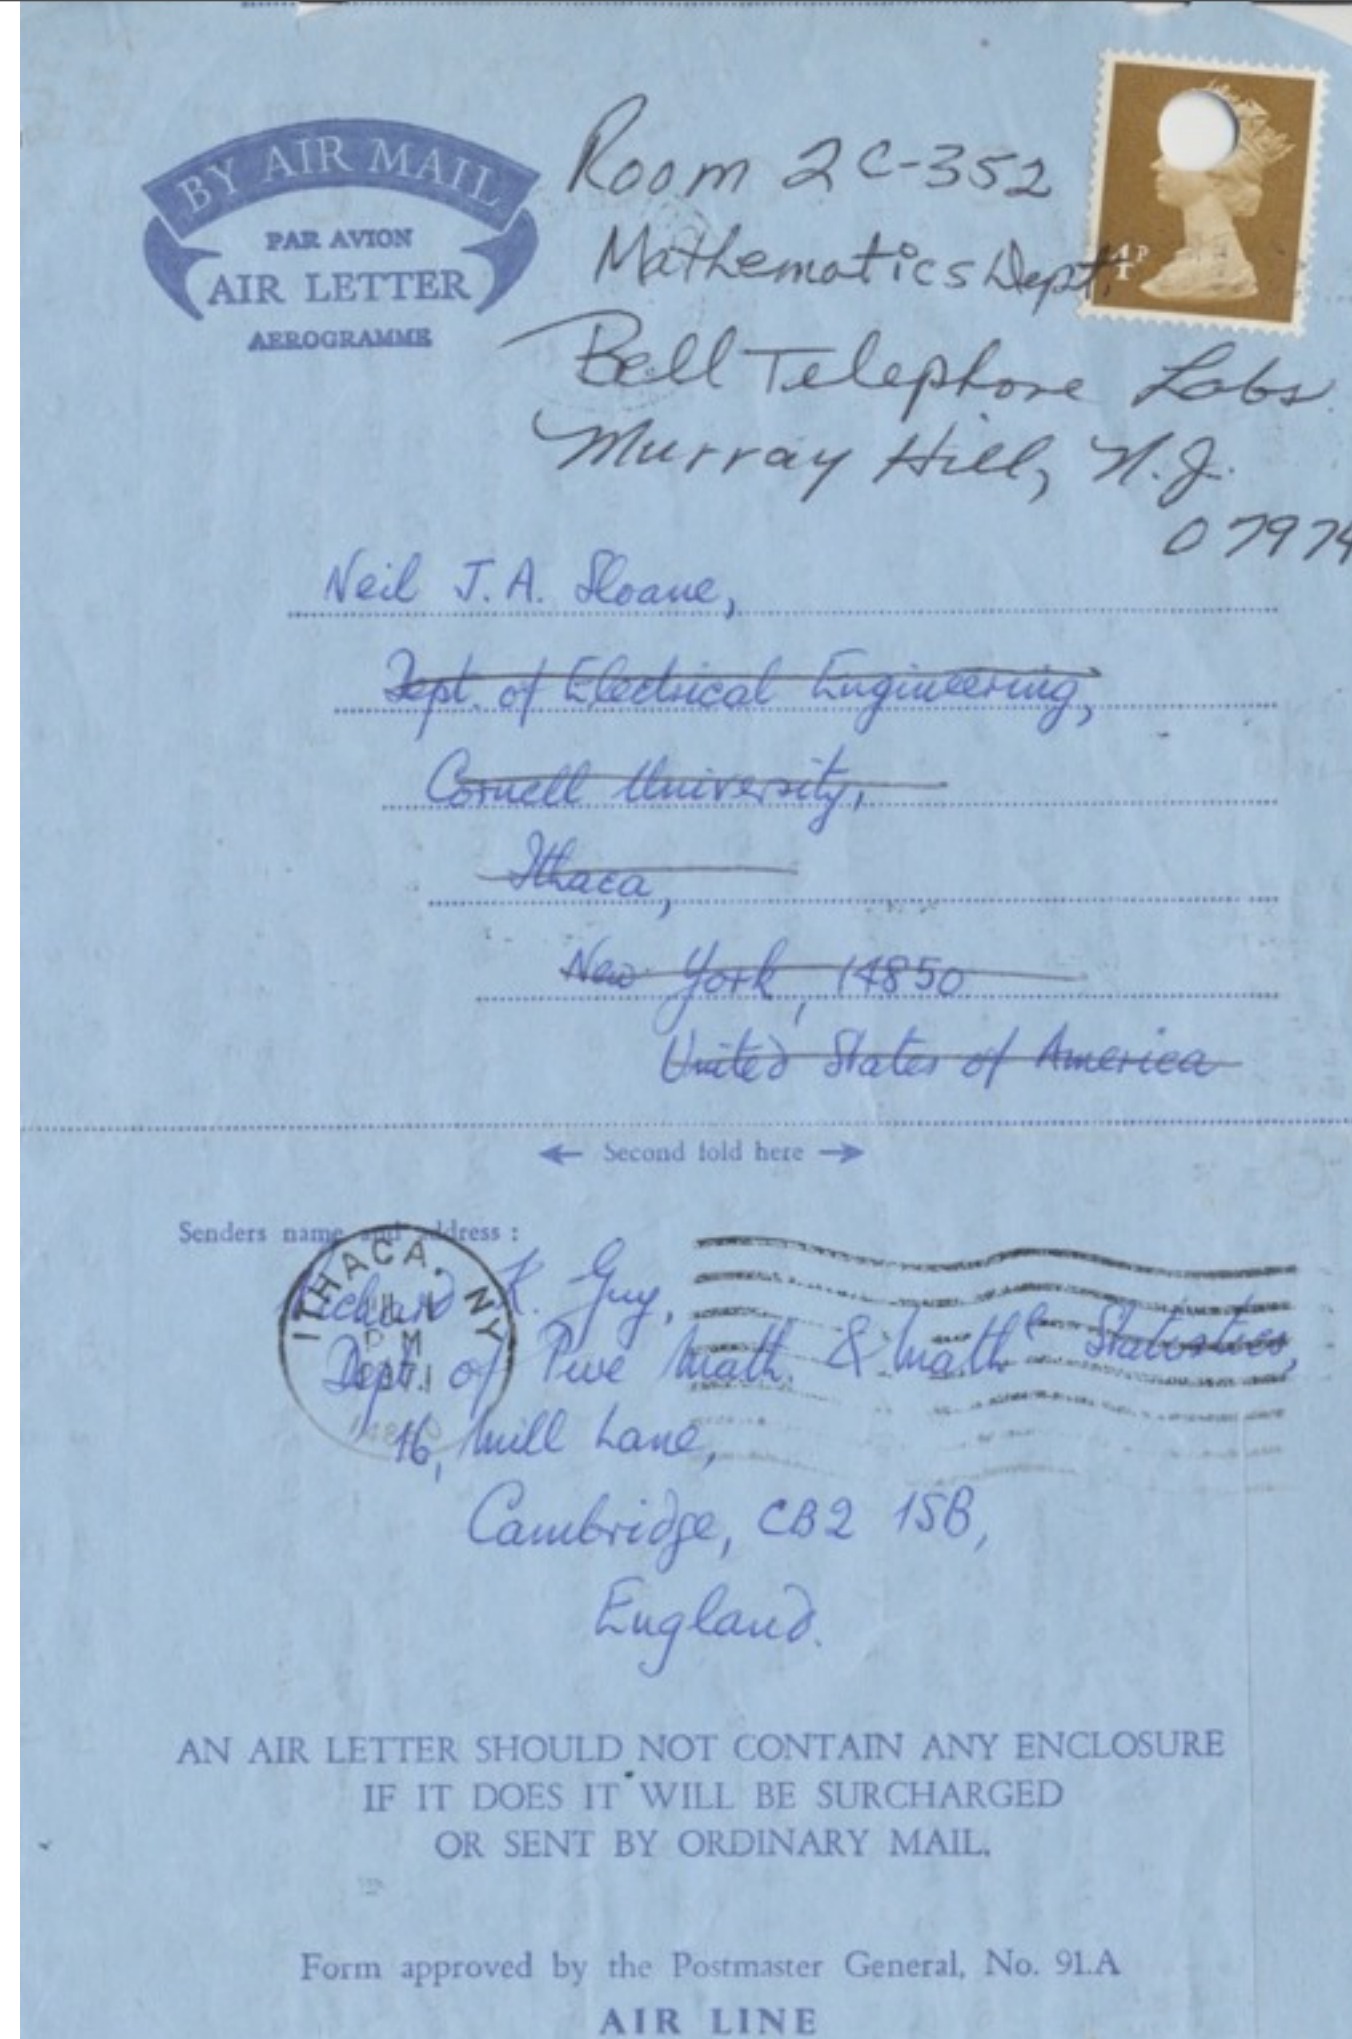 BY AIR MAIL
PAR AVION
AIR LETTER
AEROGRAMME
Room 2C-352
Mathematics Dept.
4P
Bell Telephone Labs.
Murray Hill, N.J.
07974
Neil J.A. Sloane,
Dept. of Electrical Engineering,
Cornell University,
Ithaca,
New York, 14850
United States of America
← Second fold here →
Senders name and address :
ITHACA, NY
PM
Richard K. Guy,
Dept. of Pure Math. & Mathl Statistics,
16, Mill Lane,
Cambridge, CB2 1SB,
England.
AN AIR LETTER SHOULD NOT CONTAIN ANY ENCLOSURE
IF IT DOES IT WILL BE SURCHARGED
OR SENT BY ORDINARY MAIL.
Form approved by the Postmaster General, No. 91.A
AIR LINE